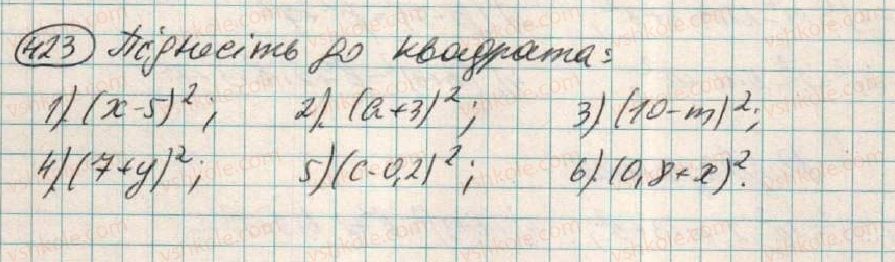 423 Піднесіть до квадрата:
1) (x-5)²; 2) (a+3)²; 3) (10-m)²;
4) (7+y)²; 5) (c-0,2)²; 6) (0,8+x)².